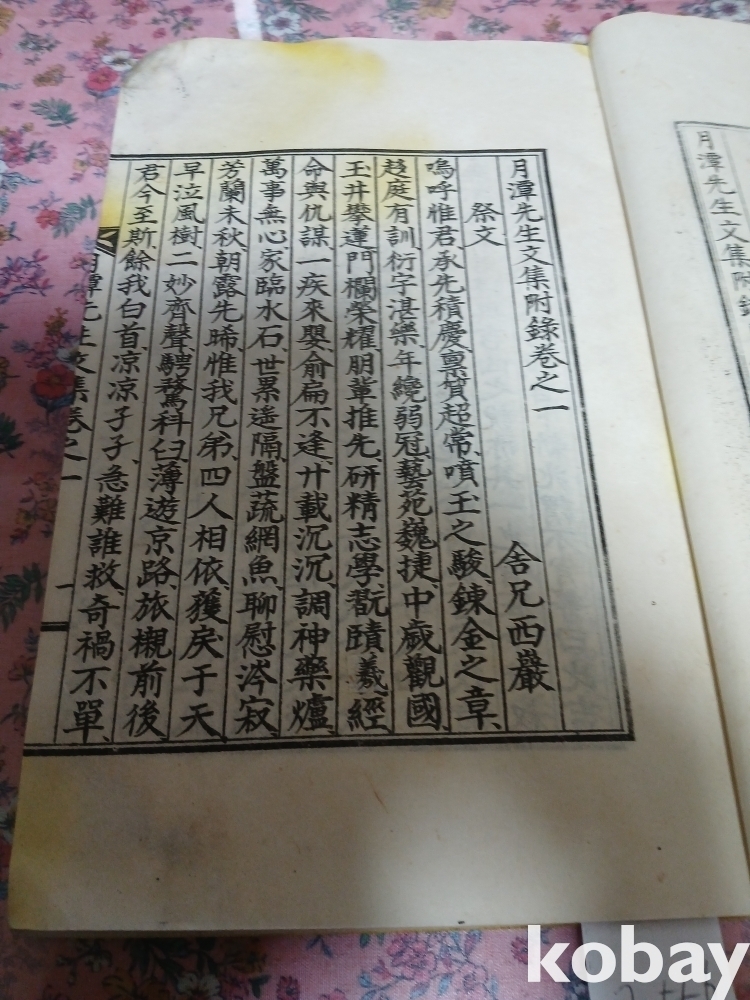 月潭先生文集附
月潭先生文集附錄卷之一
祭文 舍兄西巖
嗚呼惟君承先積慶禀質超常噴玉之駿鍊金之章
趍庭有訓衍字湛樂年纔弱冠藝苑巍捷中歲觀國
玉井攀蓮門欄榮耀朋輩推先研精志學翫賾羲經
命與仇謀一疾來嬰俞扁不逢廾載沉沉調神藥爐
萬事無心家臨水石世累遙隔盤蔬網魚聊慰涔寂
芳蘭未秋朝露先晞惟我兄弟四人相依獲戾于天
早泣風樹二妙齊聲騁騖科臼薄遊京路旅櫬前後
君今至斯餘我白首凉凉孑孑急難誰救奇禍不單
月潭先生文集卷之一 一
kobay